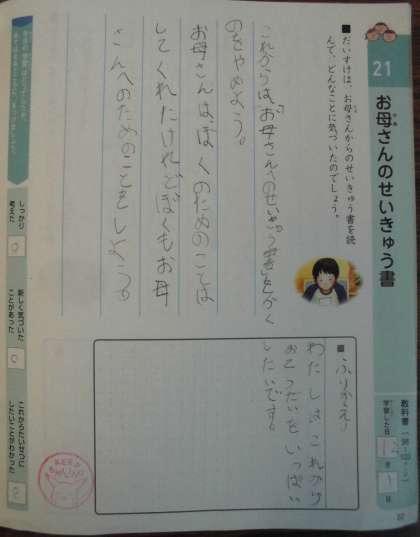 21
お母さんのせいきゅう書
■だいすけは、お母さんからのせいきゅう書を読
んで、どんなことに気づいたのでしょう。
これからは、お母さんへのせいきゅう書をかく
のをやめよう。
お母さんは、ぼくのためのことは
してくれたけれどぼくもお母
さんへのためのことをしよう。
■ふりかえり
わたしはこれから
おてつだいをいっぱい
したいです。
教科書
学習した日
12月
1日
しっかり
考えた
新しく気づいた
ことがあった
これからたいせつに
したいことがわかった